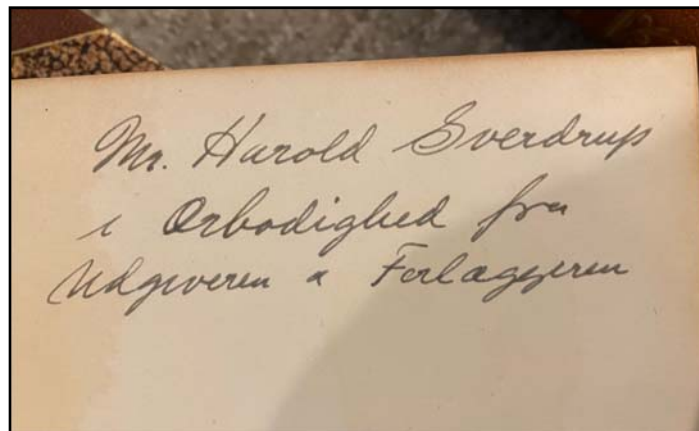 Mr. Harold Sverdrup
i Ærbødighed fra
Udgiveren & Forlæggeren